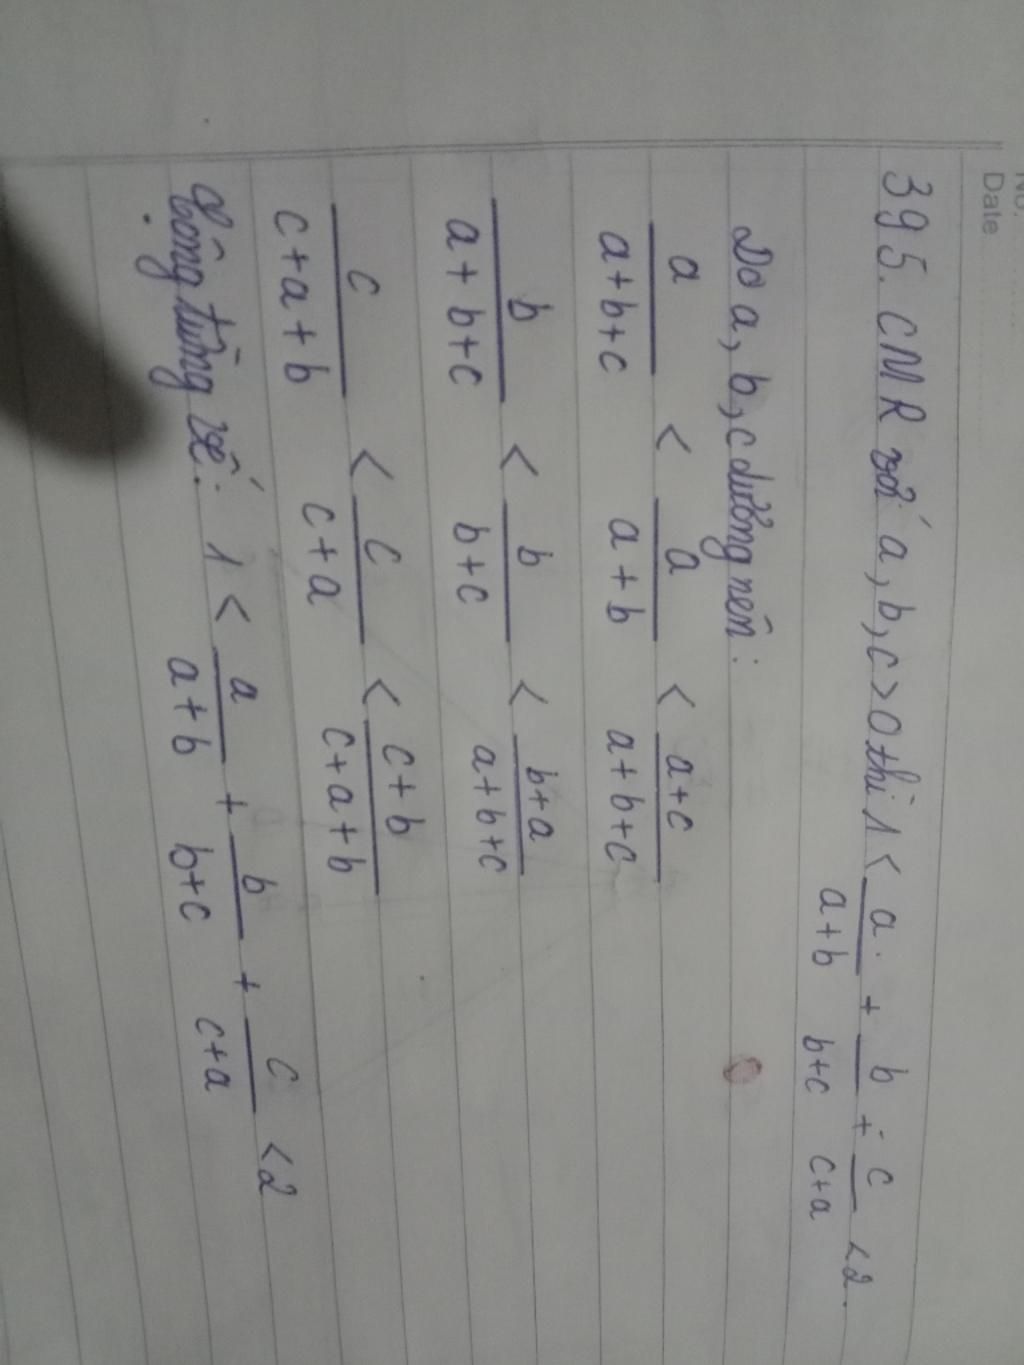 No.
Date
395. CMR với a, b, c > 0 thì 1 < a/(a+b) + b/(b+c) + c/(c+a) < 2.
Do a, b, c dương nên:
a/(a+b+c) < a/(a+b) < (a+c)/(a+b+c)
b/(a+b+c) < b/(b+c) < (b+a)/(a+b+c)
c/(c+a+b) < c/(c+a) < (c+b)/(c+a+b)
Cộng từng vế: 1 < a/(a+b) + b/(b+c) + c/(c+a) < 2